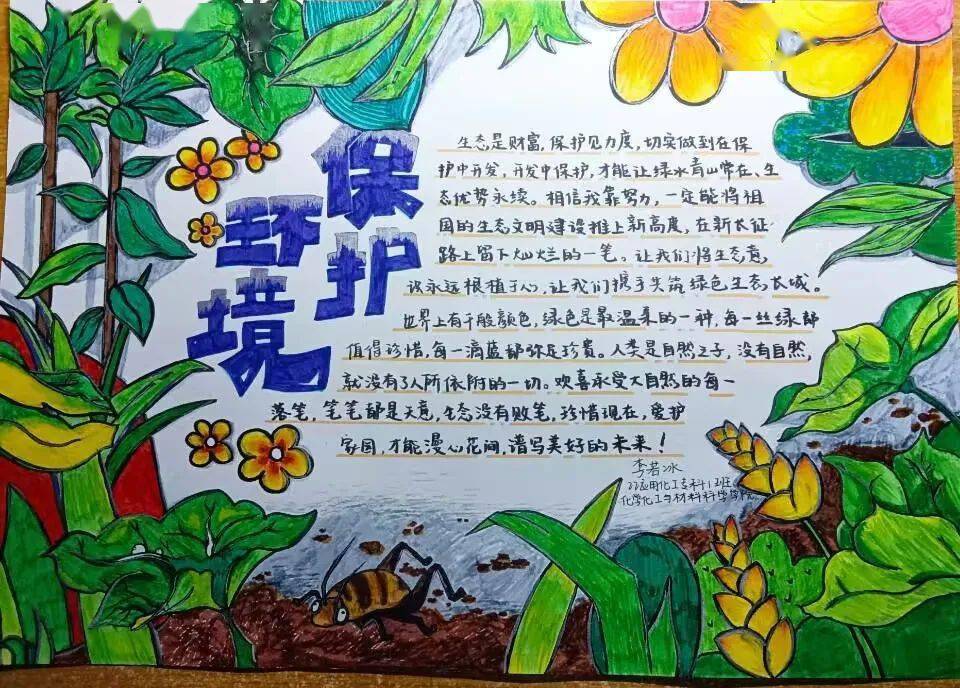 保护
环境
生态是财富,保护见力度,切实做到在保
护中开发,开发中保护,才能让绿水青山常在、生
态优势永续。相信我靠努力,一定能将祖
国的生态文明建设推上新高度,在新长征
路上留下灿烂的一笔。让我们将生态意,
识永远根植于心,让我们携手共筑绿色生态长城。
世界上有千般颜色,绿色是最温柔的一种,每一丝绿都
值得珍惜,每一滴蓝都弥足珍贵。人类是自然之子,没有自然,
就没有了人所依附的一切。欢喜承受大自然的每一
落笔,笔笔都是天意,生态没有败笔,珍惜现在,爱护
家园,才能漫心花间,谱写美好的未来!
李若冰
22应用化工专科1班
化学化工与材料科学学院